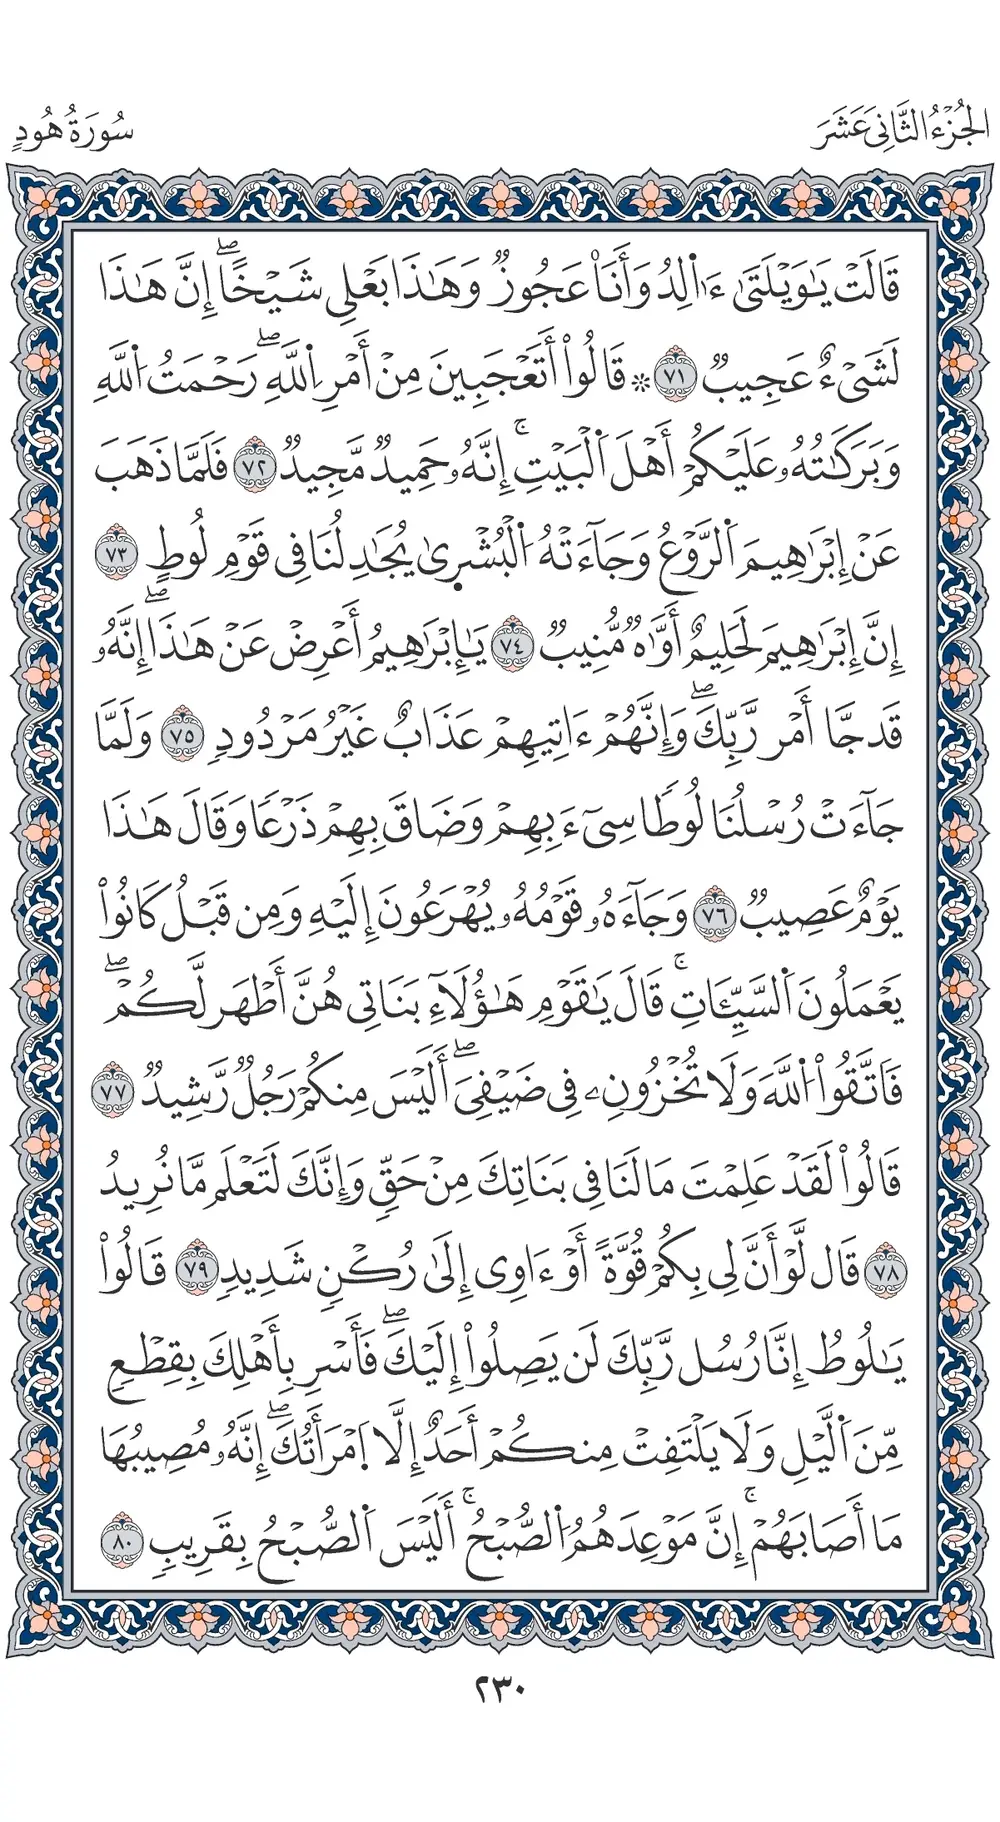 الجُزْءُ الثَّانِيَ عَشَرَ
سُورَةُ هُودٍ
قَالَتْ يَـٰوَيْلَتَىٰ ءَا۬لِدُ وَأَنَا۠ عَجُوزٞ وَهَـٰذَا بَعْلِي شَيْخًاۖ إِنَّ هَـٰذَا
لَشَيْءٌ عَجِيبٞ ٧١ ۞ قَالُوٓاْ أَتَعْجَبِينَ مِنْ أَمْرِ اِ۬للَّهِۖ رَحْمَتُ اُ۬للَّهِ
وَبَرَكَـٰتُهُۥ عَلَيْكُمْ أَهْلَ اَ۬لْبَيْتِۚ إِنَّهُۥ حَمِيدٞ مَّجِيدٞ ٧٢ فَلَمَّا ذَهَبَ
عَنْ إِبْرَٰهِيمَ اَ۬لرَّوْعُ وَجَآءَتْهُ اُ۬لْبُشْر۪ىٰ يُجَـٰدِلُنَا فِي قَوْمِ لُوطٍ ٧٣
إِنَّ إِبْرَٰهِيمَ لَحَلِيمٌ أَوَّٰهٞ مُّنِيبٞ ٧٤ يَـٰٓإِبْرَٰهِيمُ أَعْرِضْ عَنْ هَـٰذَاۖ إِنَّهُۥ
قَد جَّا أَمْر رَّبِّكَۖ وَإِنَّهُمْ ءَاتِيهِمْ عَذَابٌ غَيْرُ مَرْدُودٖ ٧٥ وَلَمَّا
جَآءَتْ رُسْلُنَا لُوطٗا سِيٓءَ بِهِمْ وَضَاقَ بِهِمْ ذَرْعٗا وَقَالَ هَـٰذَا
يَوْمٌ عَصِيبٞ ٧٦ وَجَآءَهُۥ قَوْمُهُۥ يُهْرَعُونَ إِلَيْهِ وَمِن قَبْلُ كَانُواْ
يَعْمَلُونَ اَ۬لسَّيِّـَٔاتِۚ قَالَ يَـٰقَوْمِ هَـٰٓؤُلَآءِ بَنَاتِي هُنَّ أَطْهَر لَّكُمْۖ
فَاتَّقُواْ اُ۬للَّهَ وَلَا تُخْزُونِۦ فِي ضَيْفِيَۖ أَلَيْسَ مِنكُمْ رَجُلٞ رَّشِيدٞ ٧٧
قَالُواْ لَقَدْ عَلِمْتَ مَا لَنَا فِي بَنَاتِكَ مِنْ حَقّٖ وَإِنَّكَ لَتَعْلَم مَّا نُرِيدُ
٧٨ قَال لَّوْ أَنَّ لِي بِكُمْ قُوَّةً أَوْ ءَاوِي إِلَىٰ رُكْنٖ شَدِيدٖ ٧٩ قَالُواْ
يَـٰلُوطُ إِنَّا رُسُل رَّبِّكَ لَن يَصِلُواْ إِلَيْكَۖ فَأَسْرِ بِأَهْلِكَ بِقِطْعٖ
مِّنَ اَ۬لَّيْلِ وَلَا يَلْتَفِتْ مِنكُمْ أَحَدٌ إِلَّا اَ۪مْرَأَتُكَۖ إِنَّهُۥ مُصِيبُهَا
مَا أَصَابَهُمْۚ إِنَّ مَوْعِدَهُمُ اُ۬لصُّبْحُۚ أَلَيْسَ اَ۬لصُّبْحُ بِقَرِيبٖ ٨٠
٢٣٠